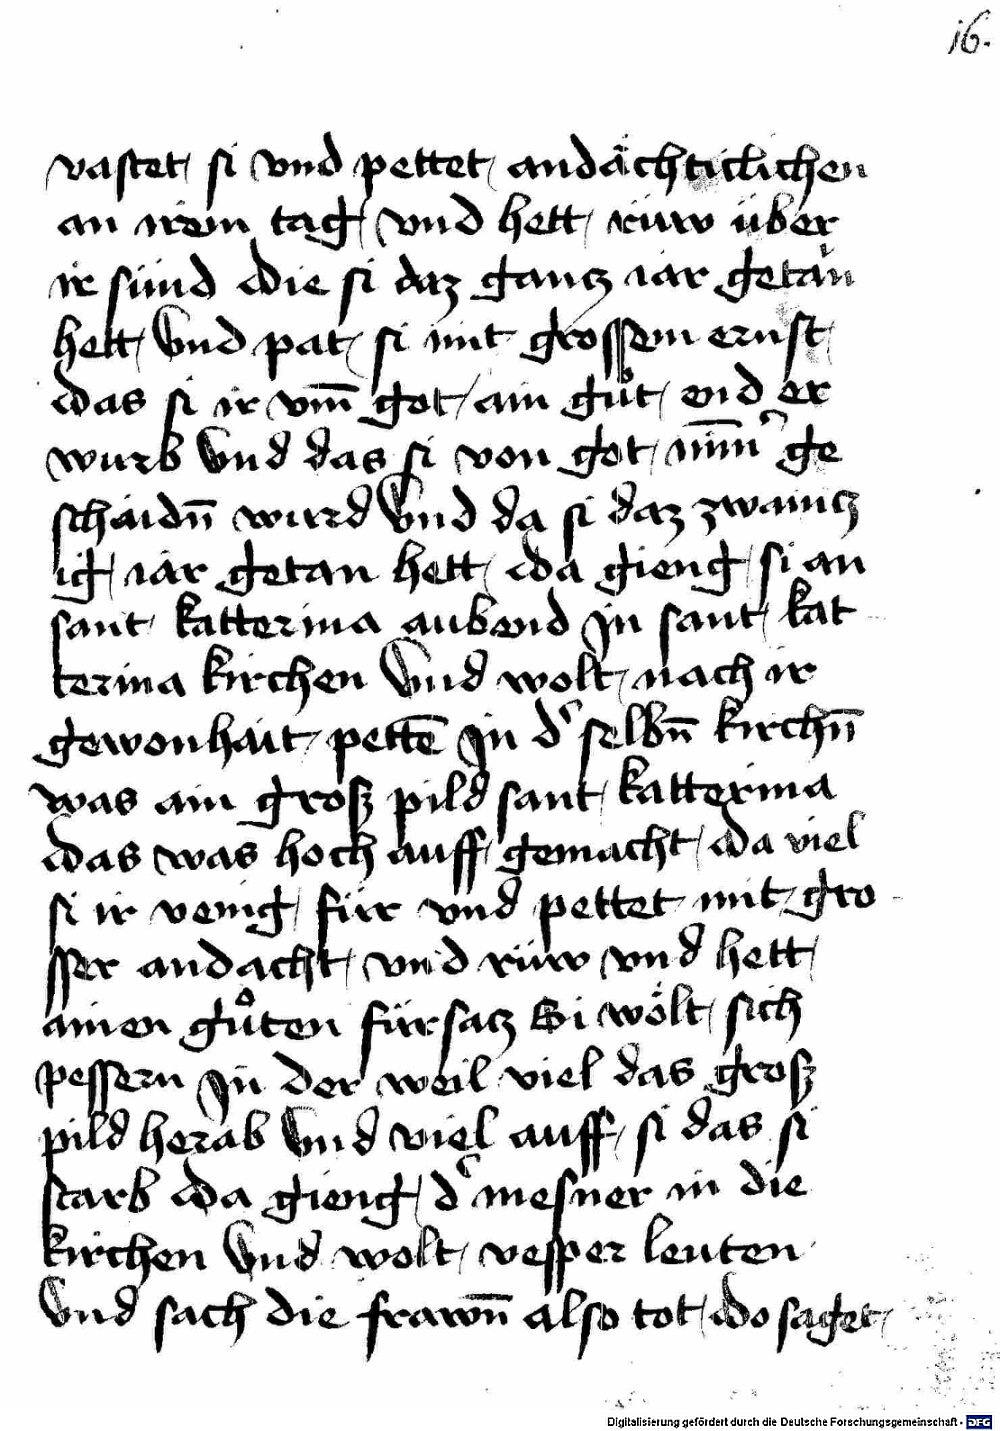 16.
vastet si vnd pettet andächticlichen
an irem tag vnd hett rüw über
ir sünd die si daz gancz iar getan
hett Vnd pat si mit grossem ernst
das si ir vm̄ got ain gůt end er
wurb Vnd das si von got nim̄ ge
schaidn̄ wurd Vnd da si daz zwaincz
ig iar getan hett da gieng si an
sant katterina aubend in sant kat
terina kirchen Vnd wolt nach ir
gewonhait pettē In d' selbn̄ kirchn̄
was ain groß pild sant katterina
das was hoch auff gemacht da viel
si ir venig für vnd pettet mit gro
sser andacht vnd rüw vnd hett
ainen gůten fürsacz Si wölt sich
pessern In der weil viel das groß
pild herab Vnd viel auff si das si
starb da gieng d' mesner in die
kirchen Vnd wolt vesper leuten
Vnd sach die frawn̄ also tot do saget
Digitalisierung gefördert durch die Deutsche Forschungsgemeinschaft - DFG